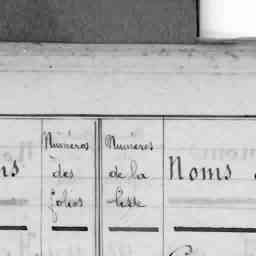 Numéros
des
folios
Numéros
de la
liste
Noms